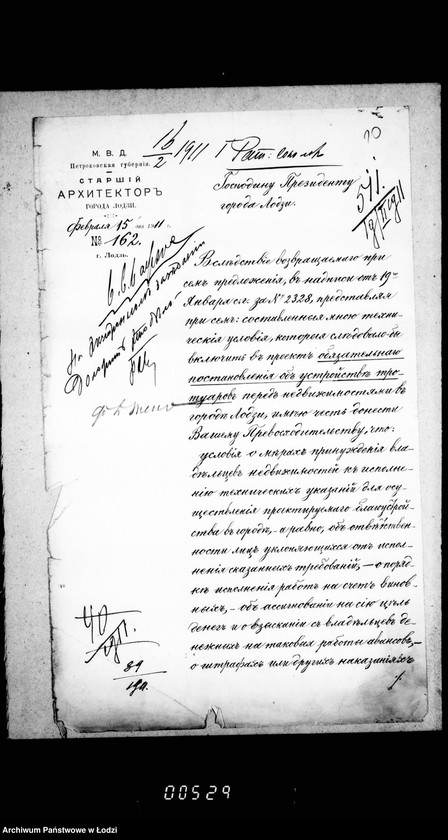 М. В. Д.
Петроковская губернія.
СТАРШІЙ
АРХИТЕКТОРЪ
ГОРОДА ЛОДЗИ.
Февраля 15 дня 1911 г.
№ 162.
г. Лодзь.
16/2 1911 г
10
511.
Господину Президенту
города Лодзи.
Вслѣдствіе возвращаемаго при
семъ предложенія, въ надписи отъ 19го
Января с.г. за № 2328, представляя
при семъ: составленныя мною техни-
ческія условія, которыя слѣдовало-бы
включить въ проектъ обязательнаго
постановленія объ устройствѣ тро-
туаровъ передъ недвижимостями въ
городѣ Лодзи, имѣю честь донести
Вашему Превосходительству, что:
условія о мѣрахъ принужденія вла-
дѣльцевъ недвижимостей къ исполне-
нію техническихъ указаній для осу-
ществленія проектируемаго благоустрой-
ства въ городѣ,- а равно, объ отвѣтствен-
ности лицъ уклоняющихся отъ испол-
ненія сказанныхъ требованій,- о поряд-
кѣ исполненія работъ на счетъ винов-
ныхъ,- объ ассигнованіи на сію цѣль
денегъ и о взысканіи съ владѣльцевъ де-
нежныхъ на таковыя работы авансовъ,-
о штрафахъ или другихъ наказаніяхъ
40
89
00529
Archiwum Państwowe w Łodzi